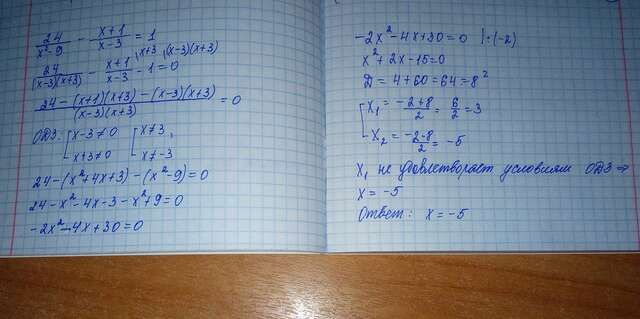 24/(x²-9) - (x+1)/(x-3) = 1
24/((x-3)(x+3)) - (x+1)/(x-3) |x+3 - 1 |(x-3)(x+3) = 0
(24-(x+1)(x+3)-(x-3)(x+3))/((x-3)(x+3)) = 0
ОДЗ: [x-3≠0 [x≠3,
x+3≠0 x≠-3
24-(x²+4x+3)-(x²-9)=0
24-x²-4x-3-x²+9=0
-2x²-4x+30=0
-2x²-4x+30=0 |:(-2)
x²+2x-15=0
D = 4+60=64=8²
[x₁ = (-2+8)/2 = 6/2 = 3
x₂ = (-2-8)/2 = -5
x₁ не удовлетворяет условиям ОДЗ ⇒
x = -5
Ответ: x = -5